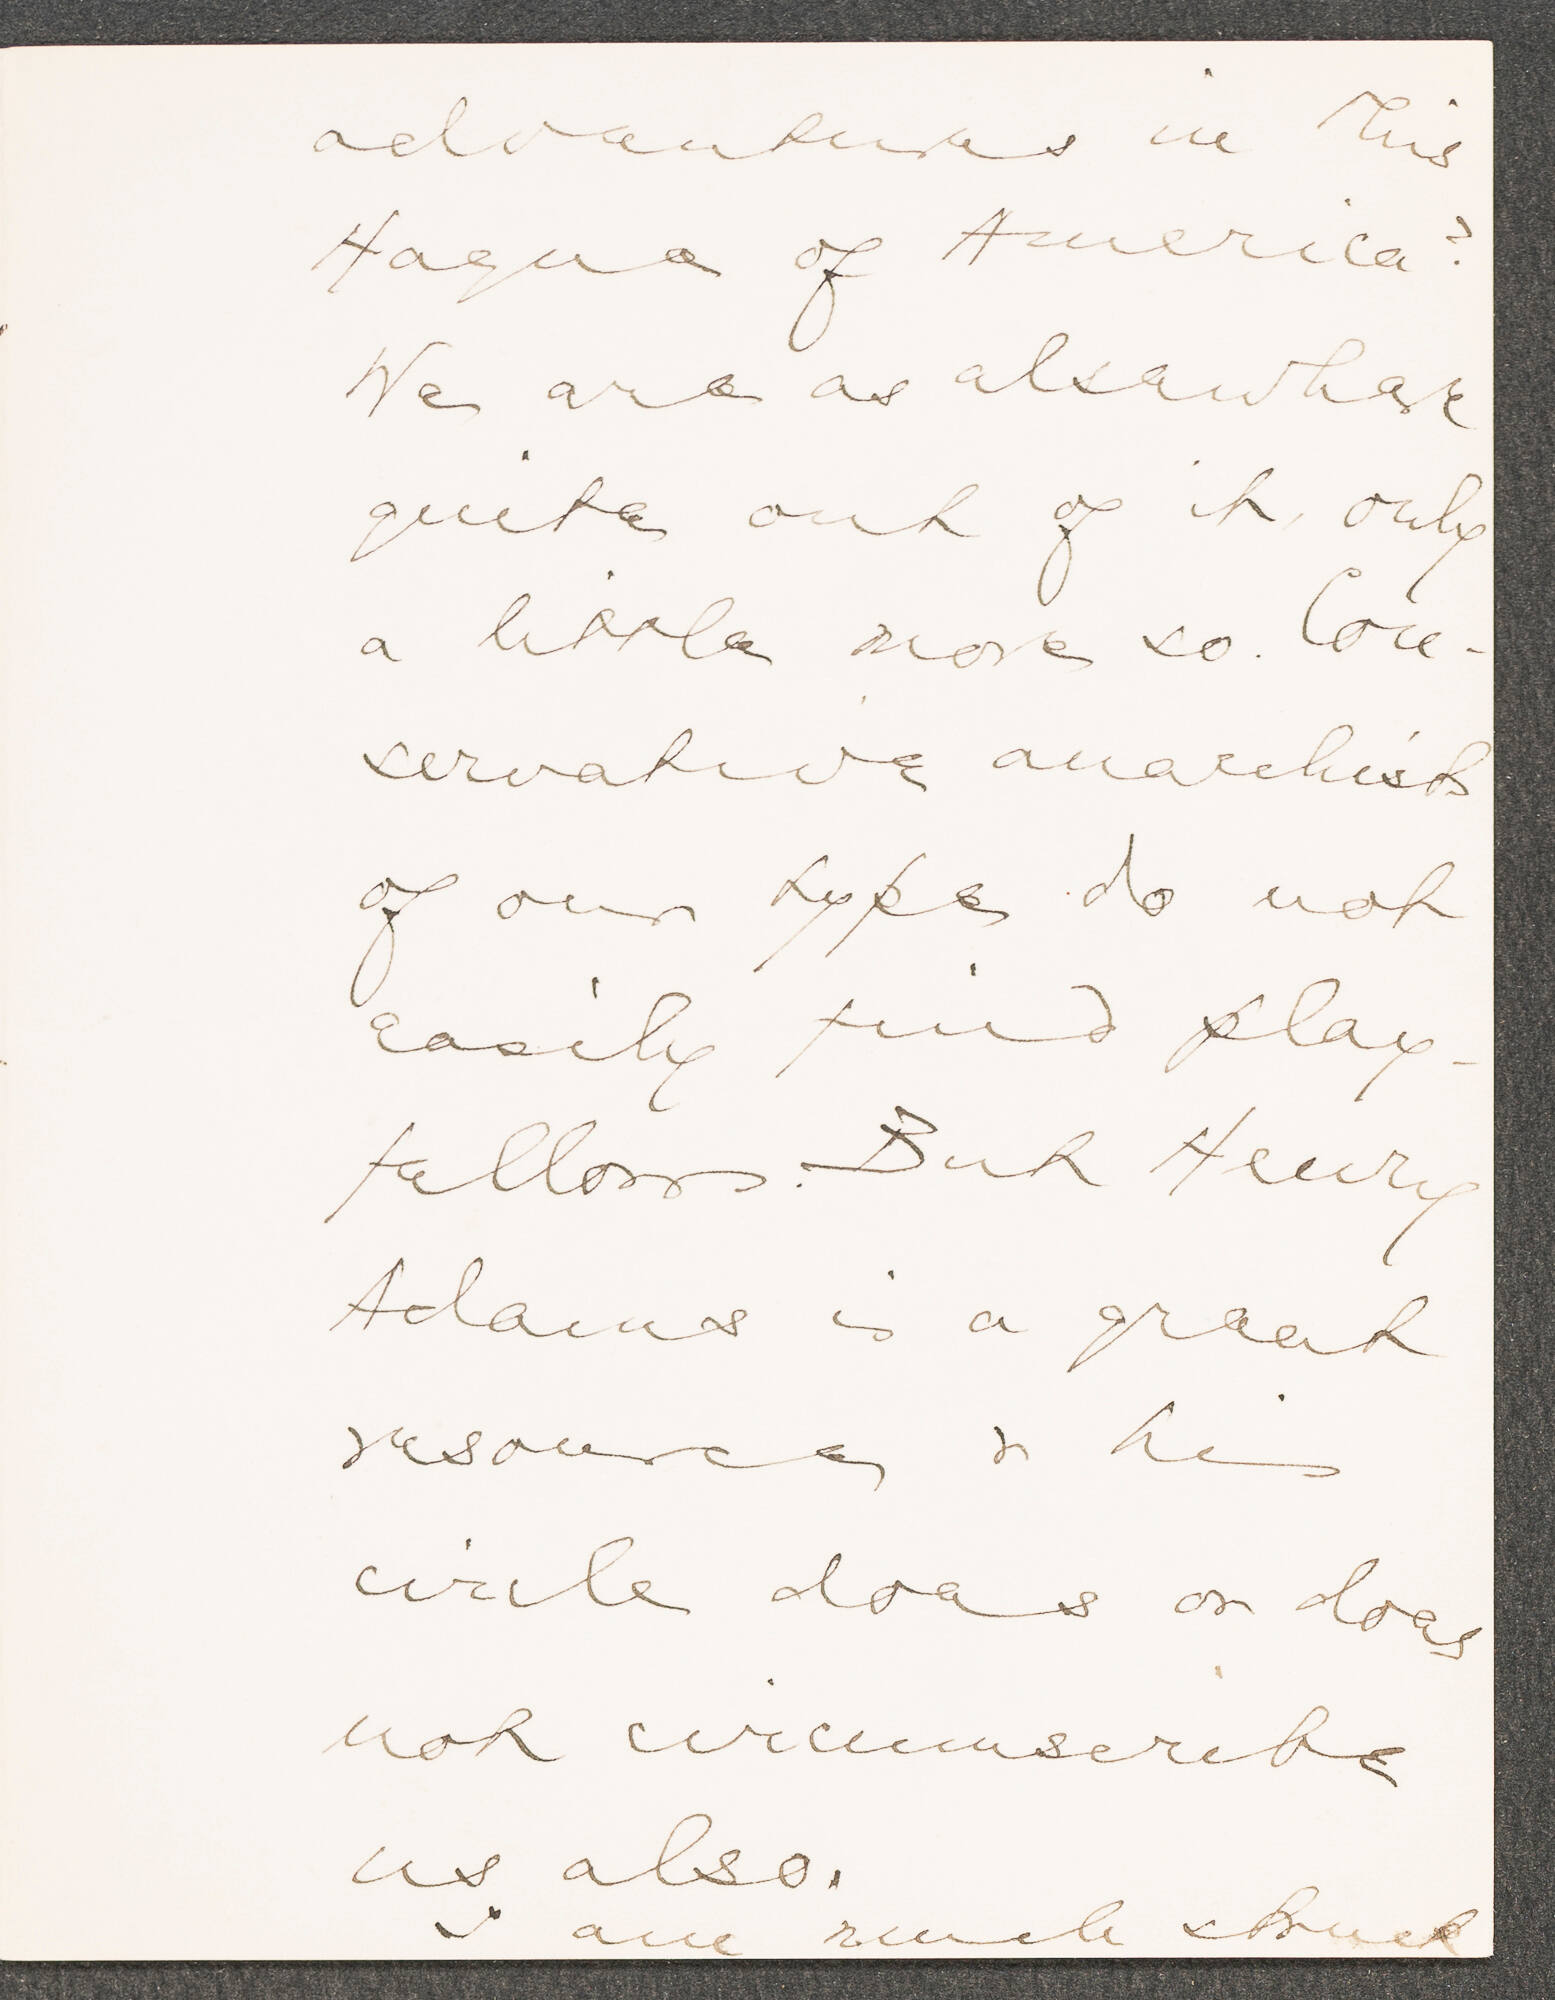 adventures in this
Hague of America?
We are as elsewhere
quite out of it, only
a little more so. Con-
servative anarchists
of our type do not
easily find play-
fellows. But Henry
Adams is a great
resource & his
circle does or does
not circumscribe
us also.
I am much struck